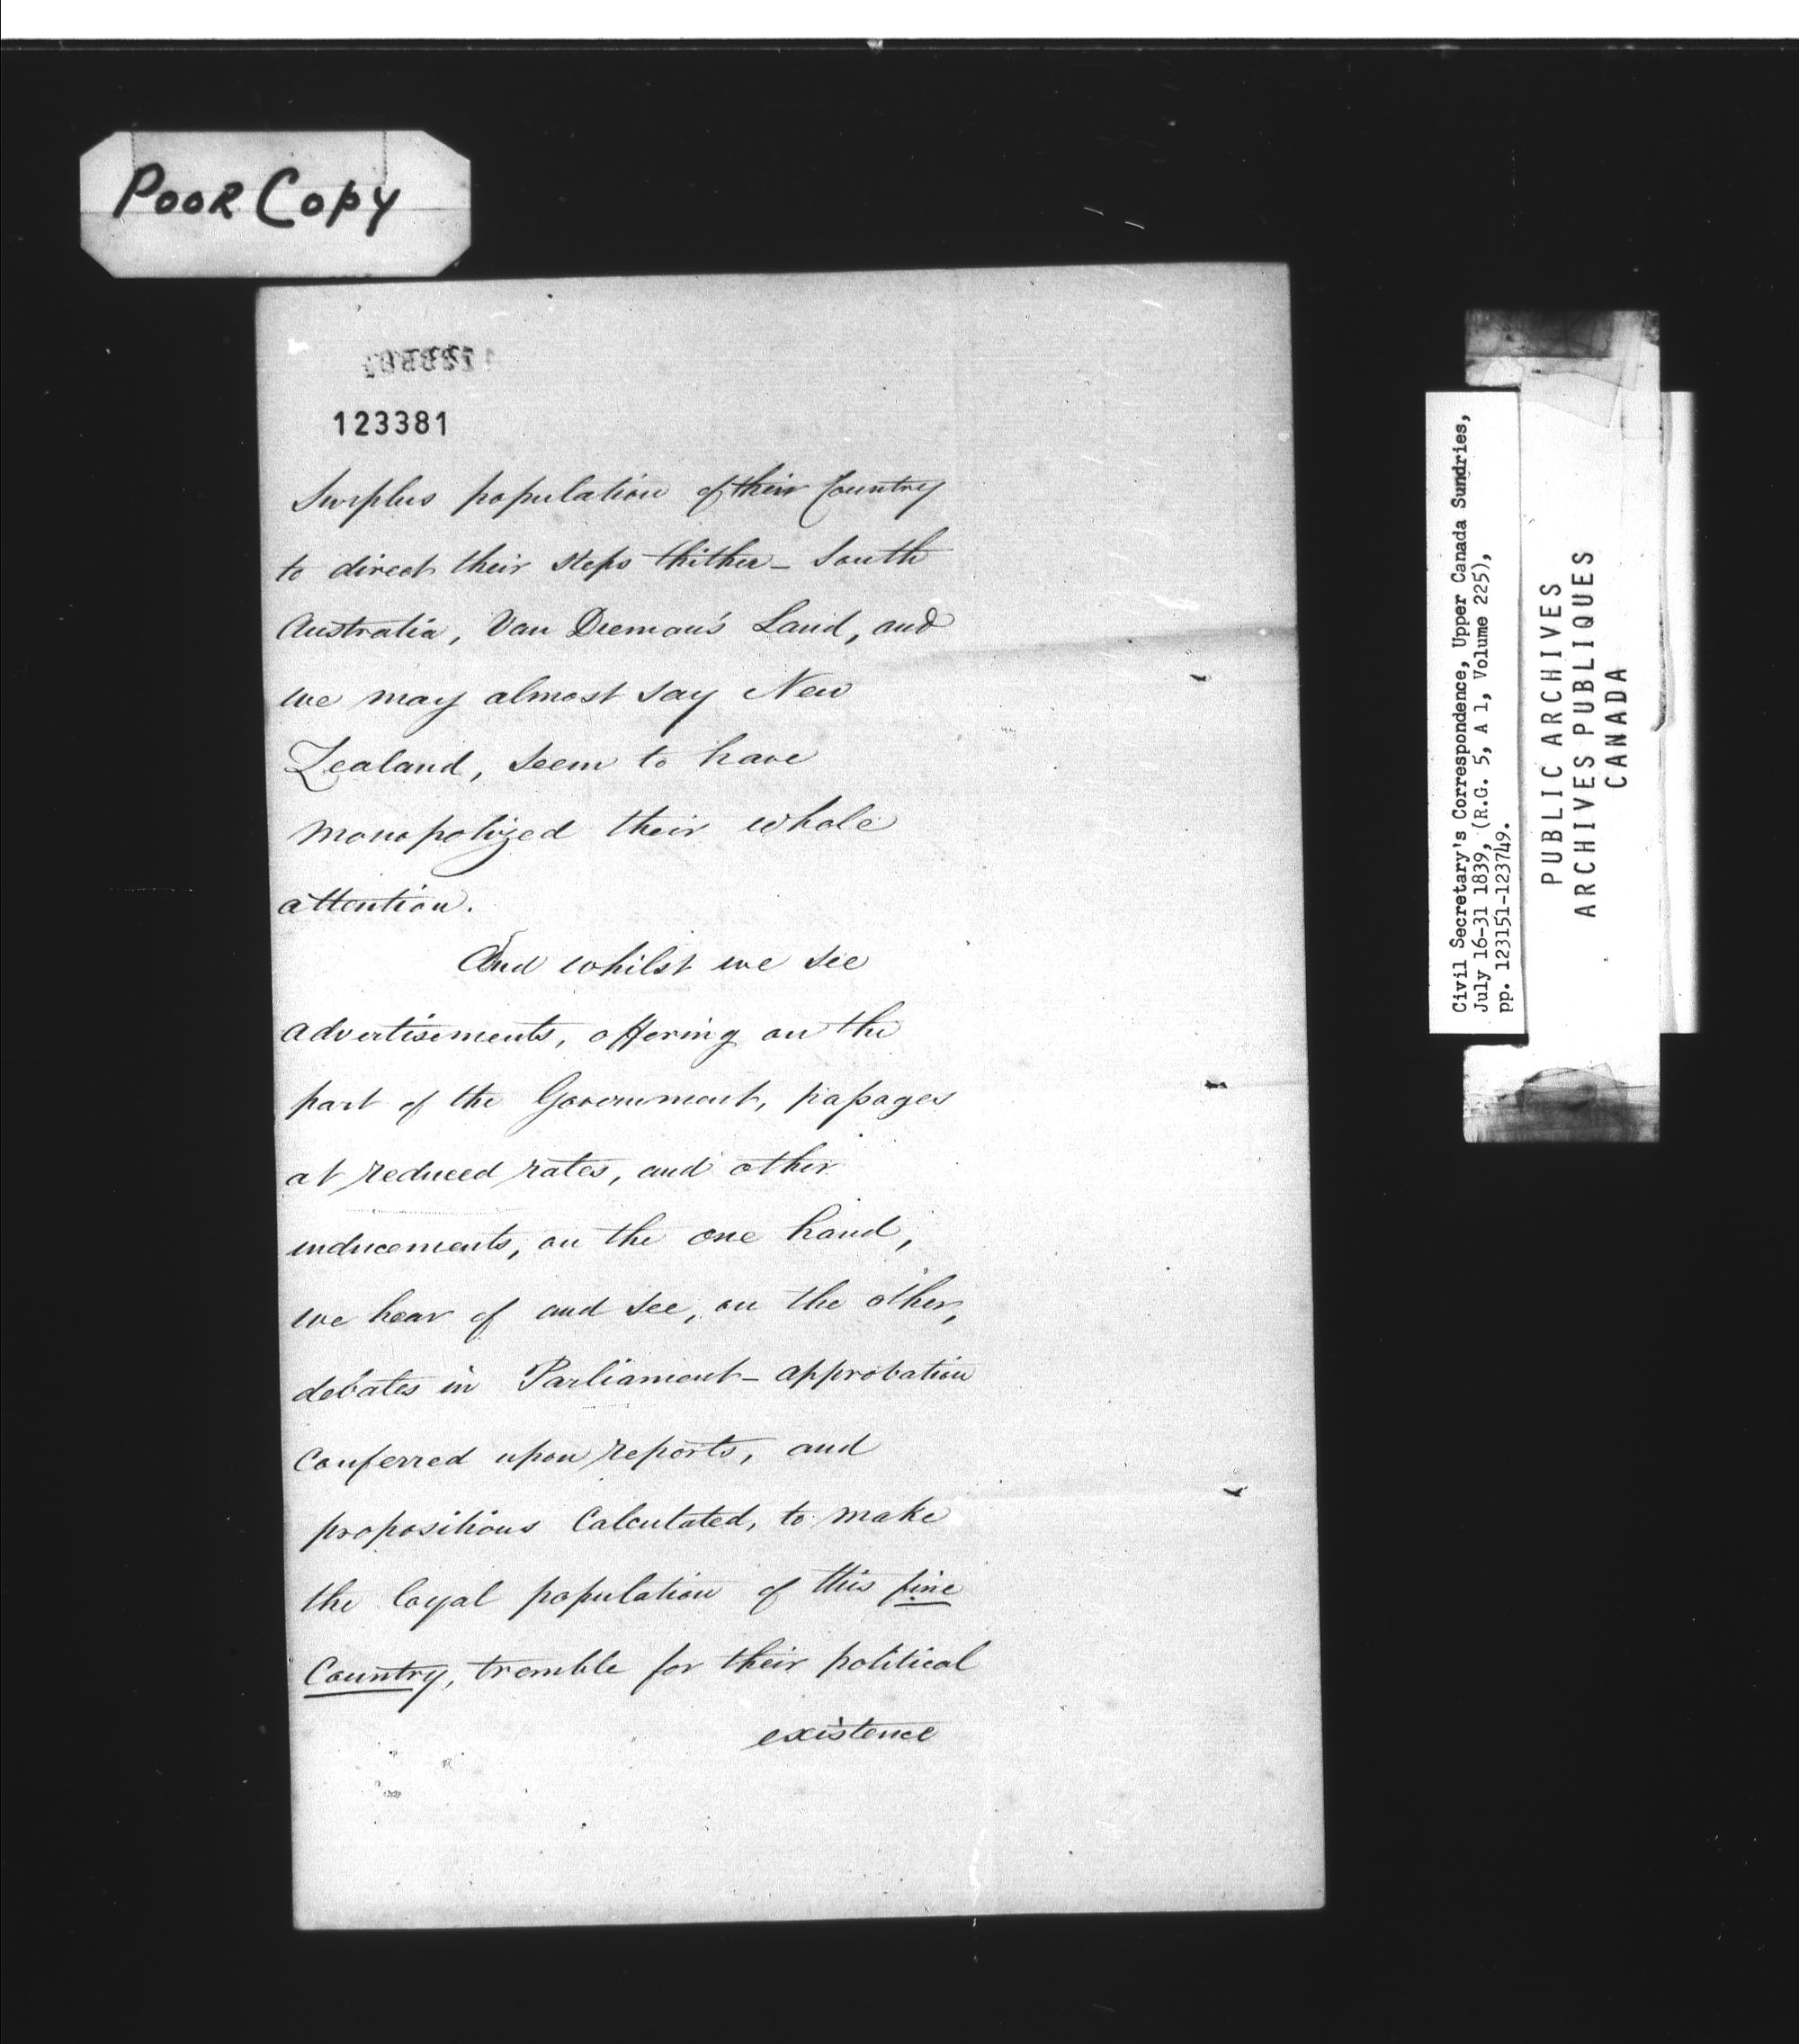 Poor Copy
123381
Surplus population of their Country
to direct their steps thither_ South
Australia, Van Dieman's Land, and
we may almost say New
Zealand, seem to have
monopolized their whole
attention.
And whilst we see
advertisements, offering on the
part of the Government, passages
at reduced rates, and other
inducements, on the one hand,
we hear of and see, on the other,
debates in Parliament_ approbation
conferred upon reports, and
propositions Calculated, to make
the loyal population of this fine
Country, tremble for their political
existence
Civil Secretary's Correspondence, Upper Canada Sundries,
July 16-31 1839, (R.G. 5, A 1, Volume 225),
pp. 123151-123749.
PUBLIC ARCHIVES
ARCHIVES PUBLIQUES
CANADA